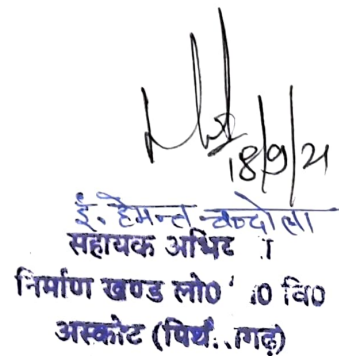 18/9/21
इं. हेमन्त चन्दोला
सहायक अभि
निर्माण खण्ड लो0 0 वि0
अस्कोट (पिथ गढ़)